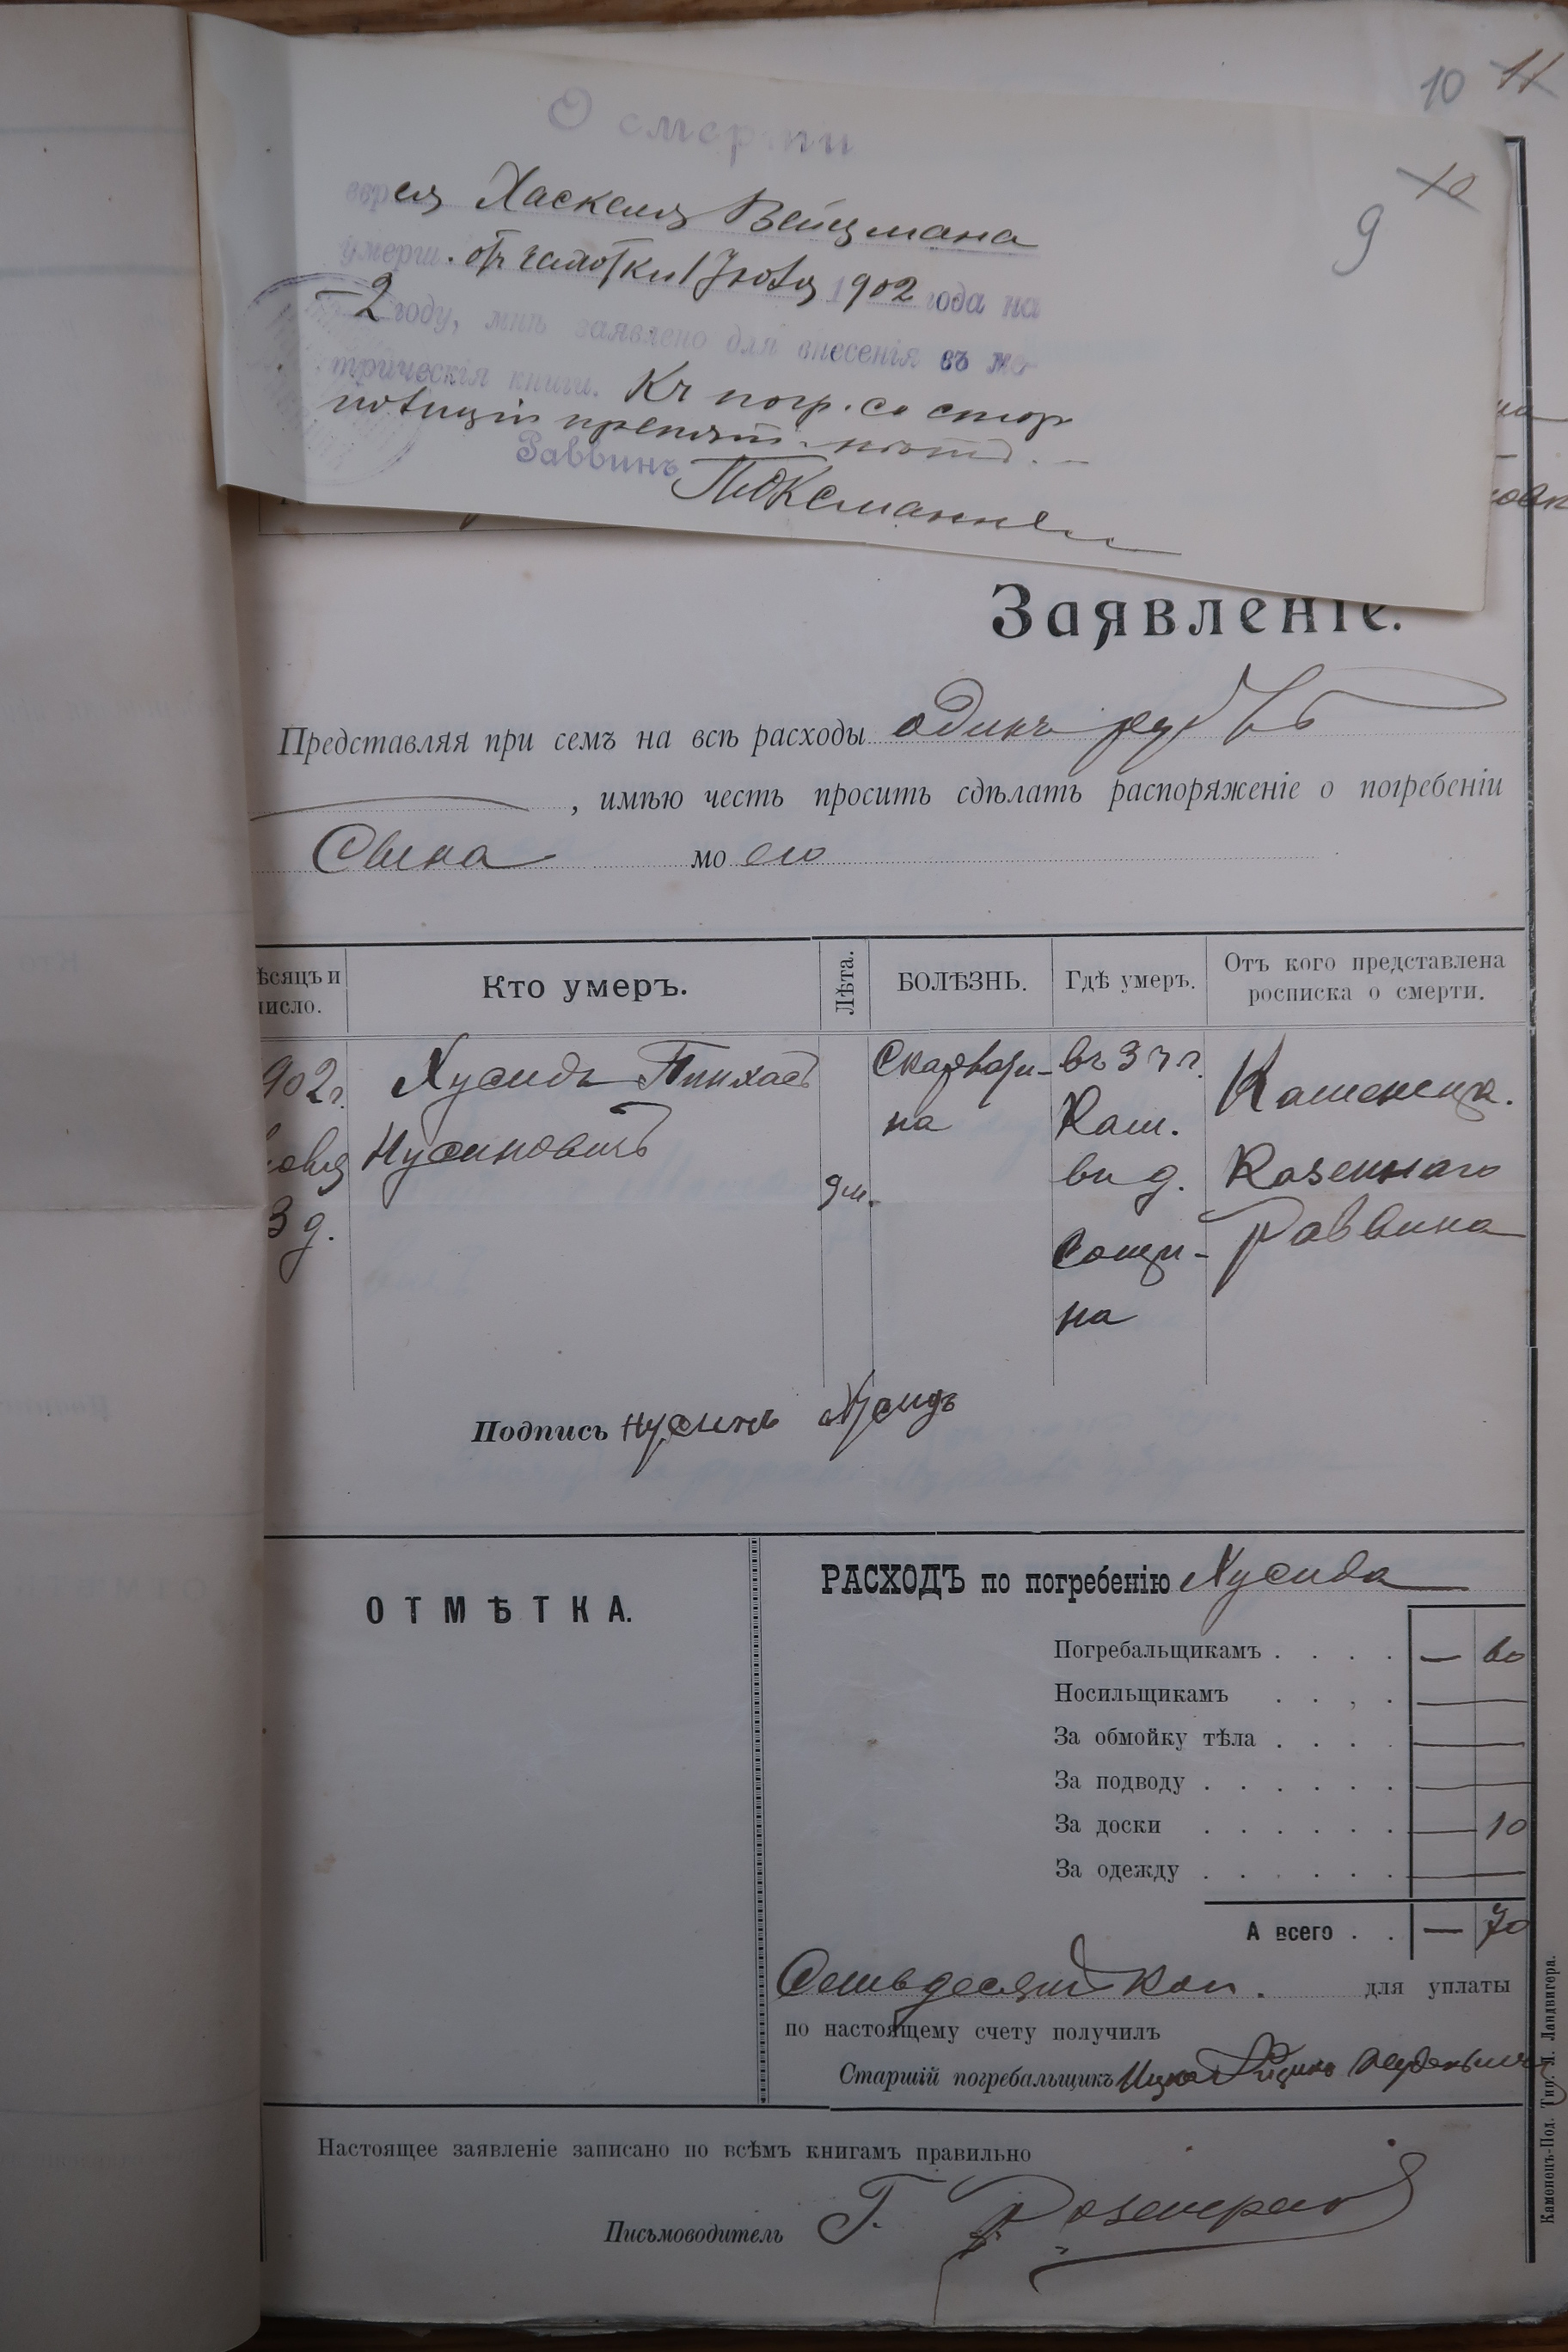 10 11
О смерти
10
еврея Хаскеля Вейцмана
9
умерш. отъ чахотки 1 Июня 1902 года на
2 году, мнѣ заявлено для внесенія въ ме-
трическія книги. Къ погр. со стор
полиціи препят. нѣтъ. —
Раввинъ
Заявленіе.
Представляя при семъ на всѣ расходы одинъ рубль
, имѣю честь просить сдѣлать распоряженіе о погребеніи
Сына моего
ѣсяцъ и Кто умеръ. Лѣта. БОЛѢЗНЬ. Гдѣ умеръ. Отъ кого представлена
исло. росписка о смерти.
902г. Хусидъ Пинхасъ Скарлати- въ 3 ч г. Каменецк.
Нусиновичъ на Кам. Казеннаго
9 м. въ д. Раввина
3 д.
на
Подпись Нусинъ Хусидъ
ОТМѢТКА.
РАСХОДЪ по погребенію Хусида
Погребальщикамъ . . . . — 60
Носильщикамъ . . , . —
За обмойку тѣла . . . . —
За подводу . . . . . . —
За доски . . . . . . — 10
За одежду . . . . . . —
А всего . . — 70
Семьдесятъ коп. для уплаты
по настоящему счету получилъ
Старшій погребальщикъ
Настоящее заявленіе записано по всѣмъ книгамъ правильно
Письмоводитель Г.
Каменецъ-Под. Тип. Я. Ландвигера.